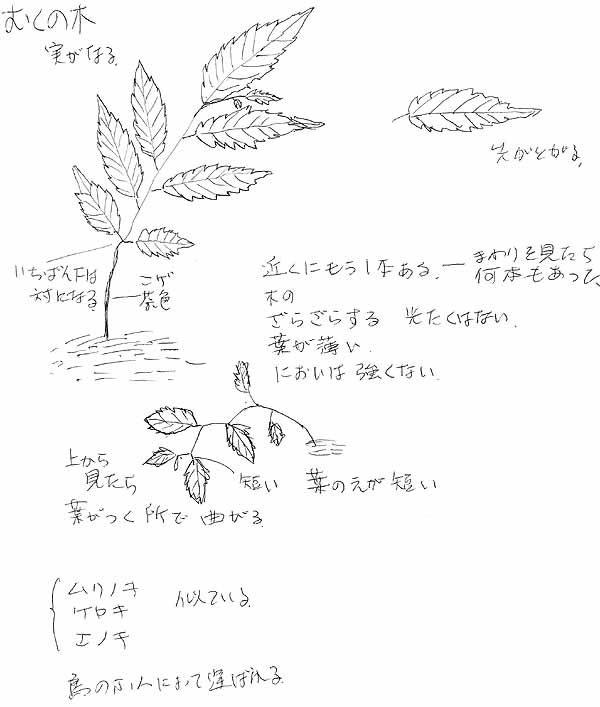 むくの木
実がなる
先がとがる
いちばん下は
対になる
こげ
茶色
近くにもう1本ある。— まわりを見たら
何本もあった
木の
ざらざらする 光たくはない
葉が薄い
においは強くない
上から
見たら
短い 葉のえが短い
葉がつく所で曲がる
ムクノキ
ケヤキ
エノキ
似ている
鳥のふんによって運ばれる